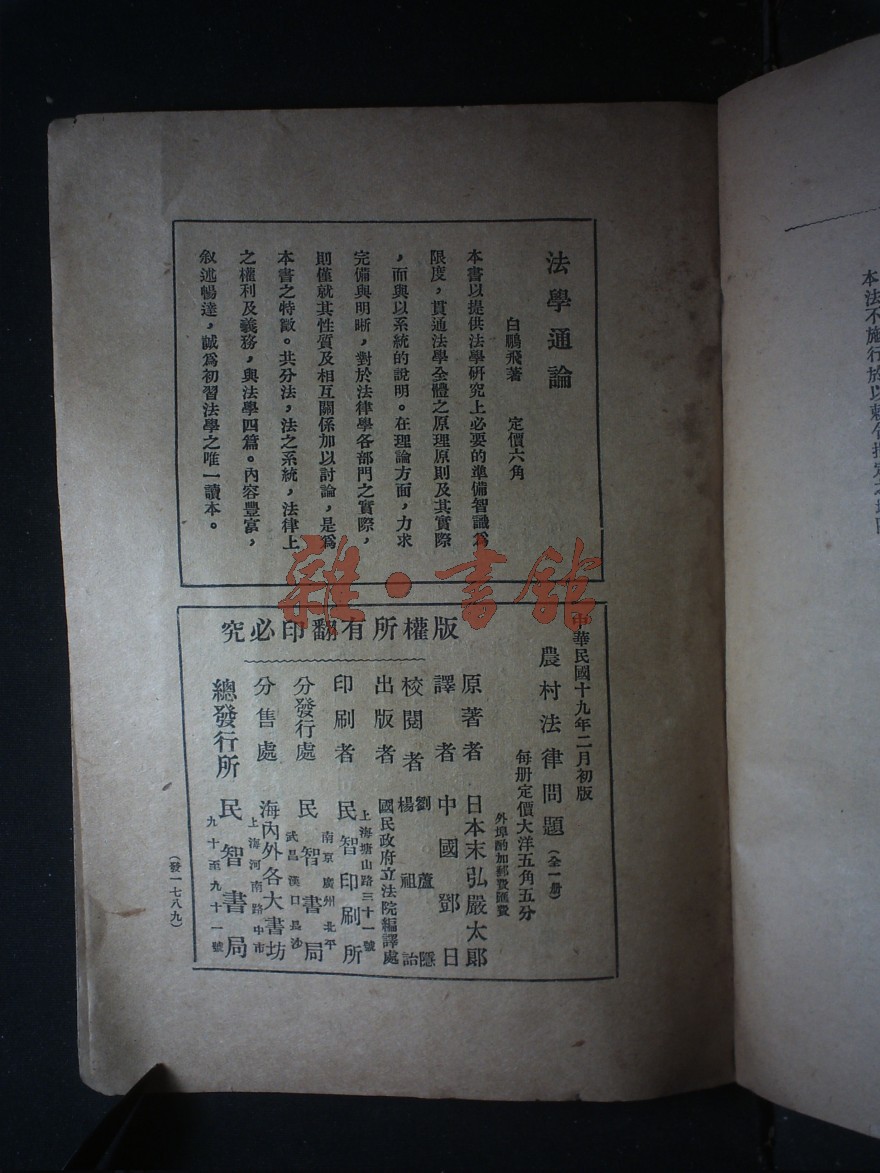 法學通論
白鵬飛著　定價六角
本書以提供法學研究上必要的準備智識爲
限度，貫通法學全體之原理原則及其實際
，而與以系統的說明。在理論方面，力求
完備與明晰，對於法律學各部門之實際，
則僅就其性質及相互關係加以討論，是爲
本書之特徵。共分法，法之系統，法律上
之權利及義務，與法學四篇。內容豐富，
敘述暢達，誠爲初習法學之唯一讀本。
中華民國十九年二月初版
農村法律問題（全一册）
每册定價大洋五角五分
外埠酌加郵費匯費
版權所有翻印必究
原著者　日本末弘嚴太郎
譯者　中國鄧日
校閱者　劉蘆隱
楊祖詒
出版者　國民政府立法院編譯處
上海塘山路三十一號
印刷者　民智印刷所
南京廣州北平
分發行處　民智書局
武昌漢口長沙
分售處　海內外各大書坊
上海河南路中市
總發行所　民智書局
九十至九十一號
（發一七八九）
雜·書館
本法不施行於以